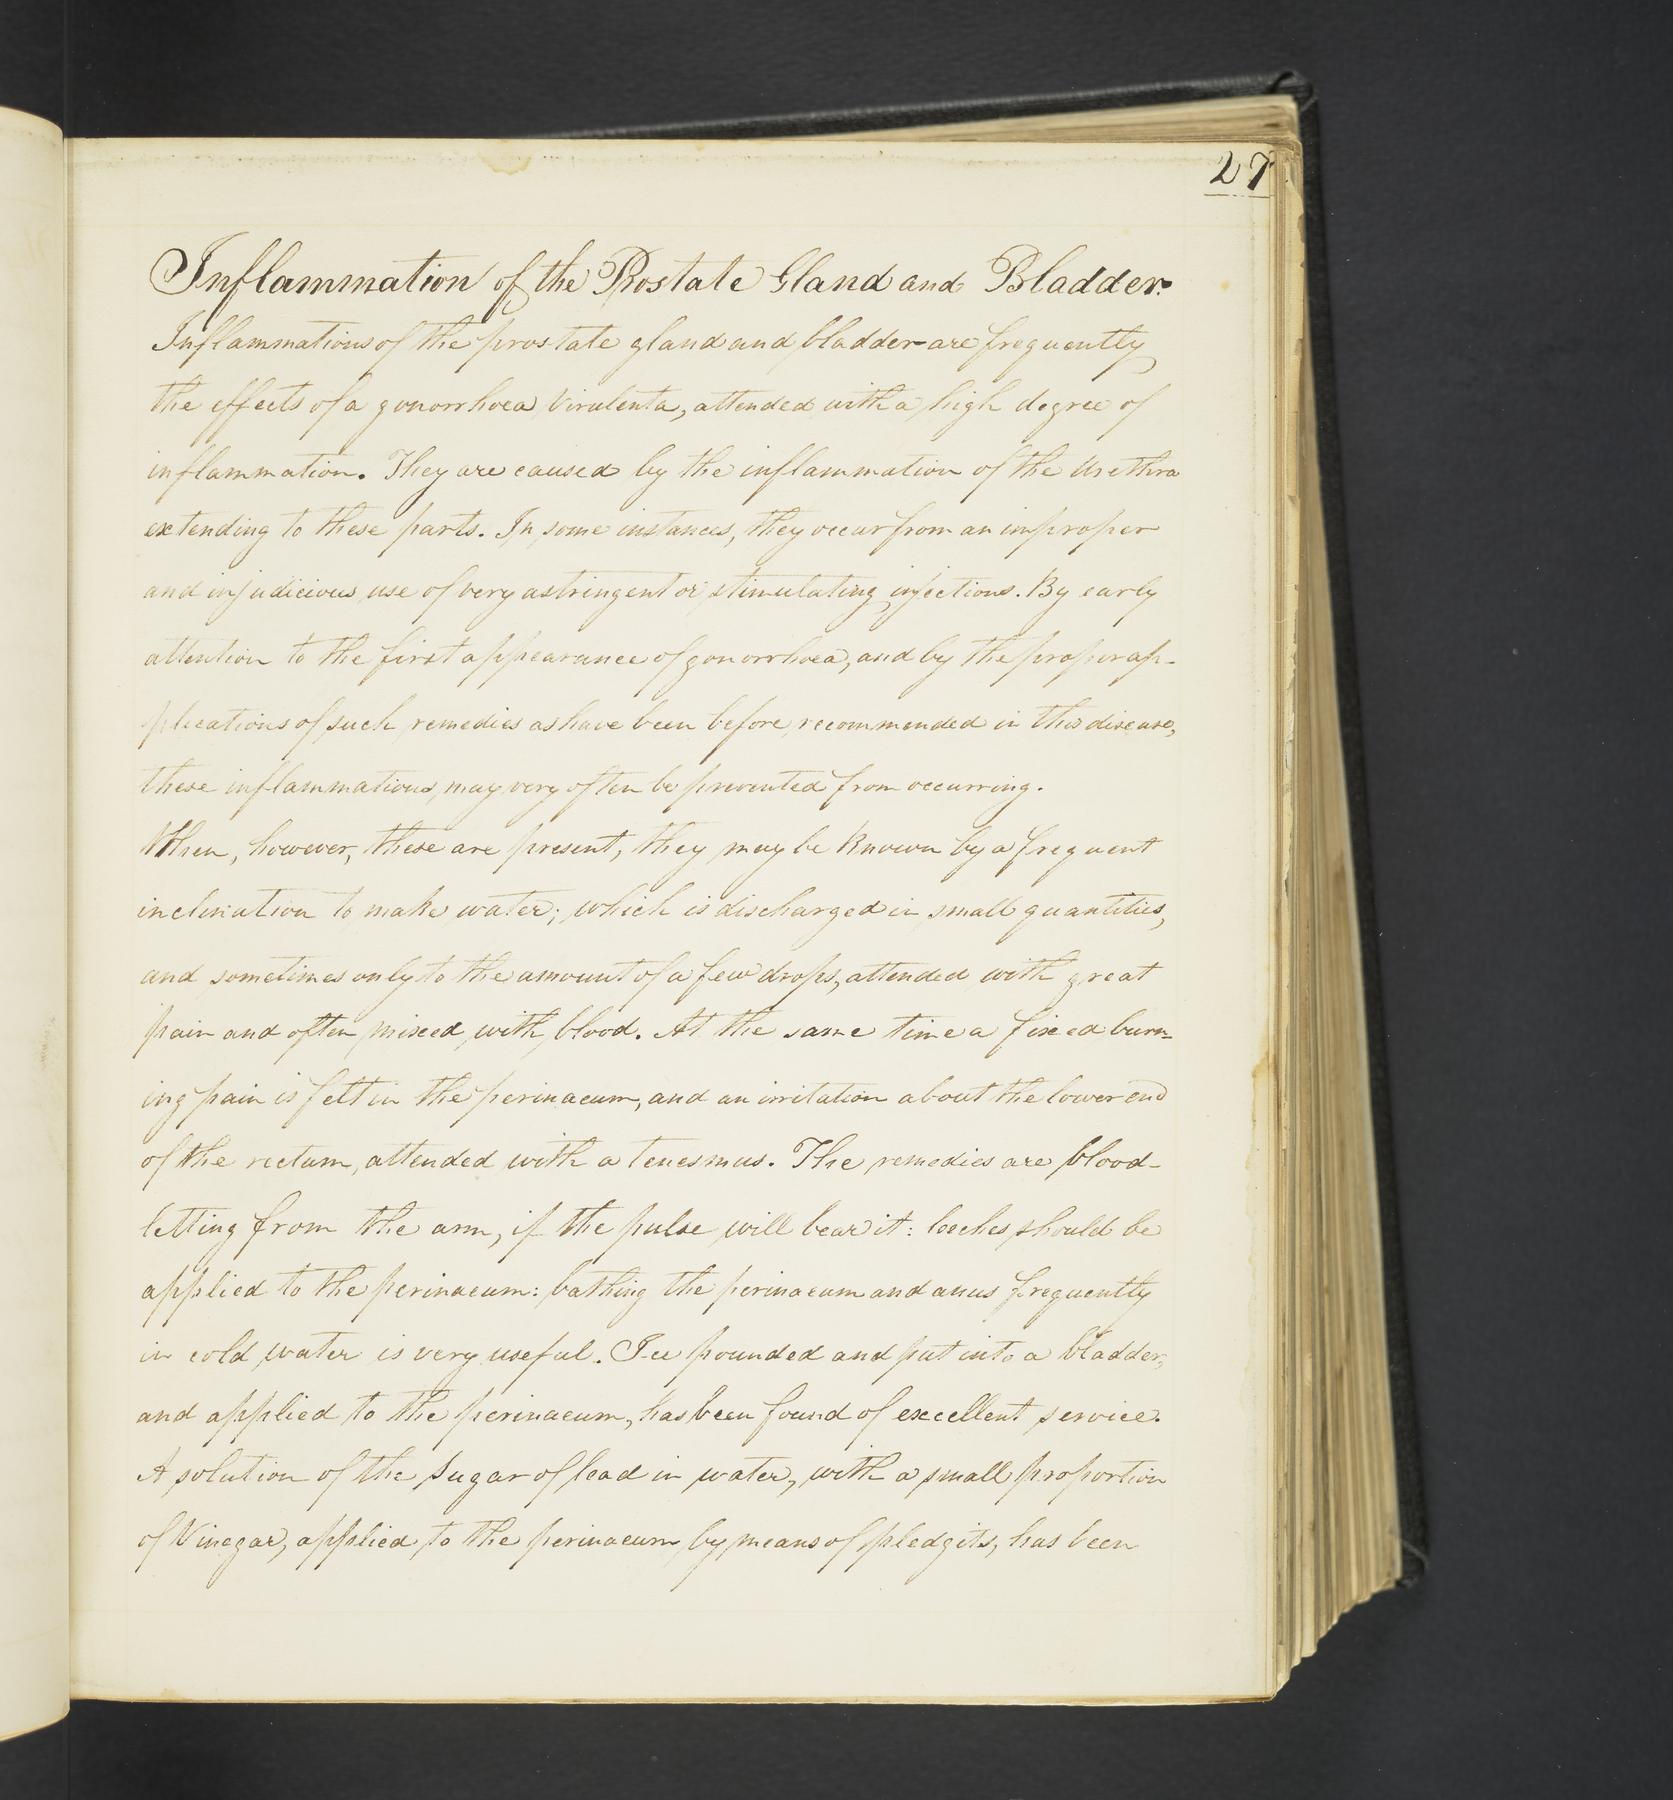 27
Inflammation of the Prostate Gland and Bladder.
Inflammations of the prostate gland and bladder are frequently
the effects of a gonorrhoea Virulenta, attended with a high degree of
inflammation. They are caused by the inflammation of the Urethra
extending to these parts. In some instances, they occur from an improper
and injudicious use of very astringent or stimulating injections. By early
attention to the first appearance of gonorrhoea, and by the proper ap-
plications of such remedies as have been before recommended in this disease,
these inflammations, may very often be prevented from occurring.
When, however, these are present, they may be known by a frequent
inclination to make water; which is discharged in small quantities,
and sometimes only to the amount of a few drops, attended with great
pain and often mixed with blood. At the same time a fixed burn-
ing pain is felt in the perinaeum, and an irritation about the lower end
of the rectum, attended with a tenesmus. The remedies are blood-
letting from the arm, if the pulse will bear it: leeches should be
applied to the perinaeum: bathing the perinaeum and anus frequently
in cold water is very useful. Ice pounded and put into a bladder,
and applied to the perinaeum, has been found of excellent service.
A solution of the Sugar of lead in water, with a small proportion
of Vinegar, applied to the perinaeum by means of pledgits, has been